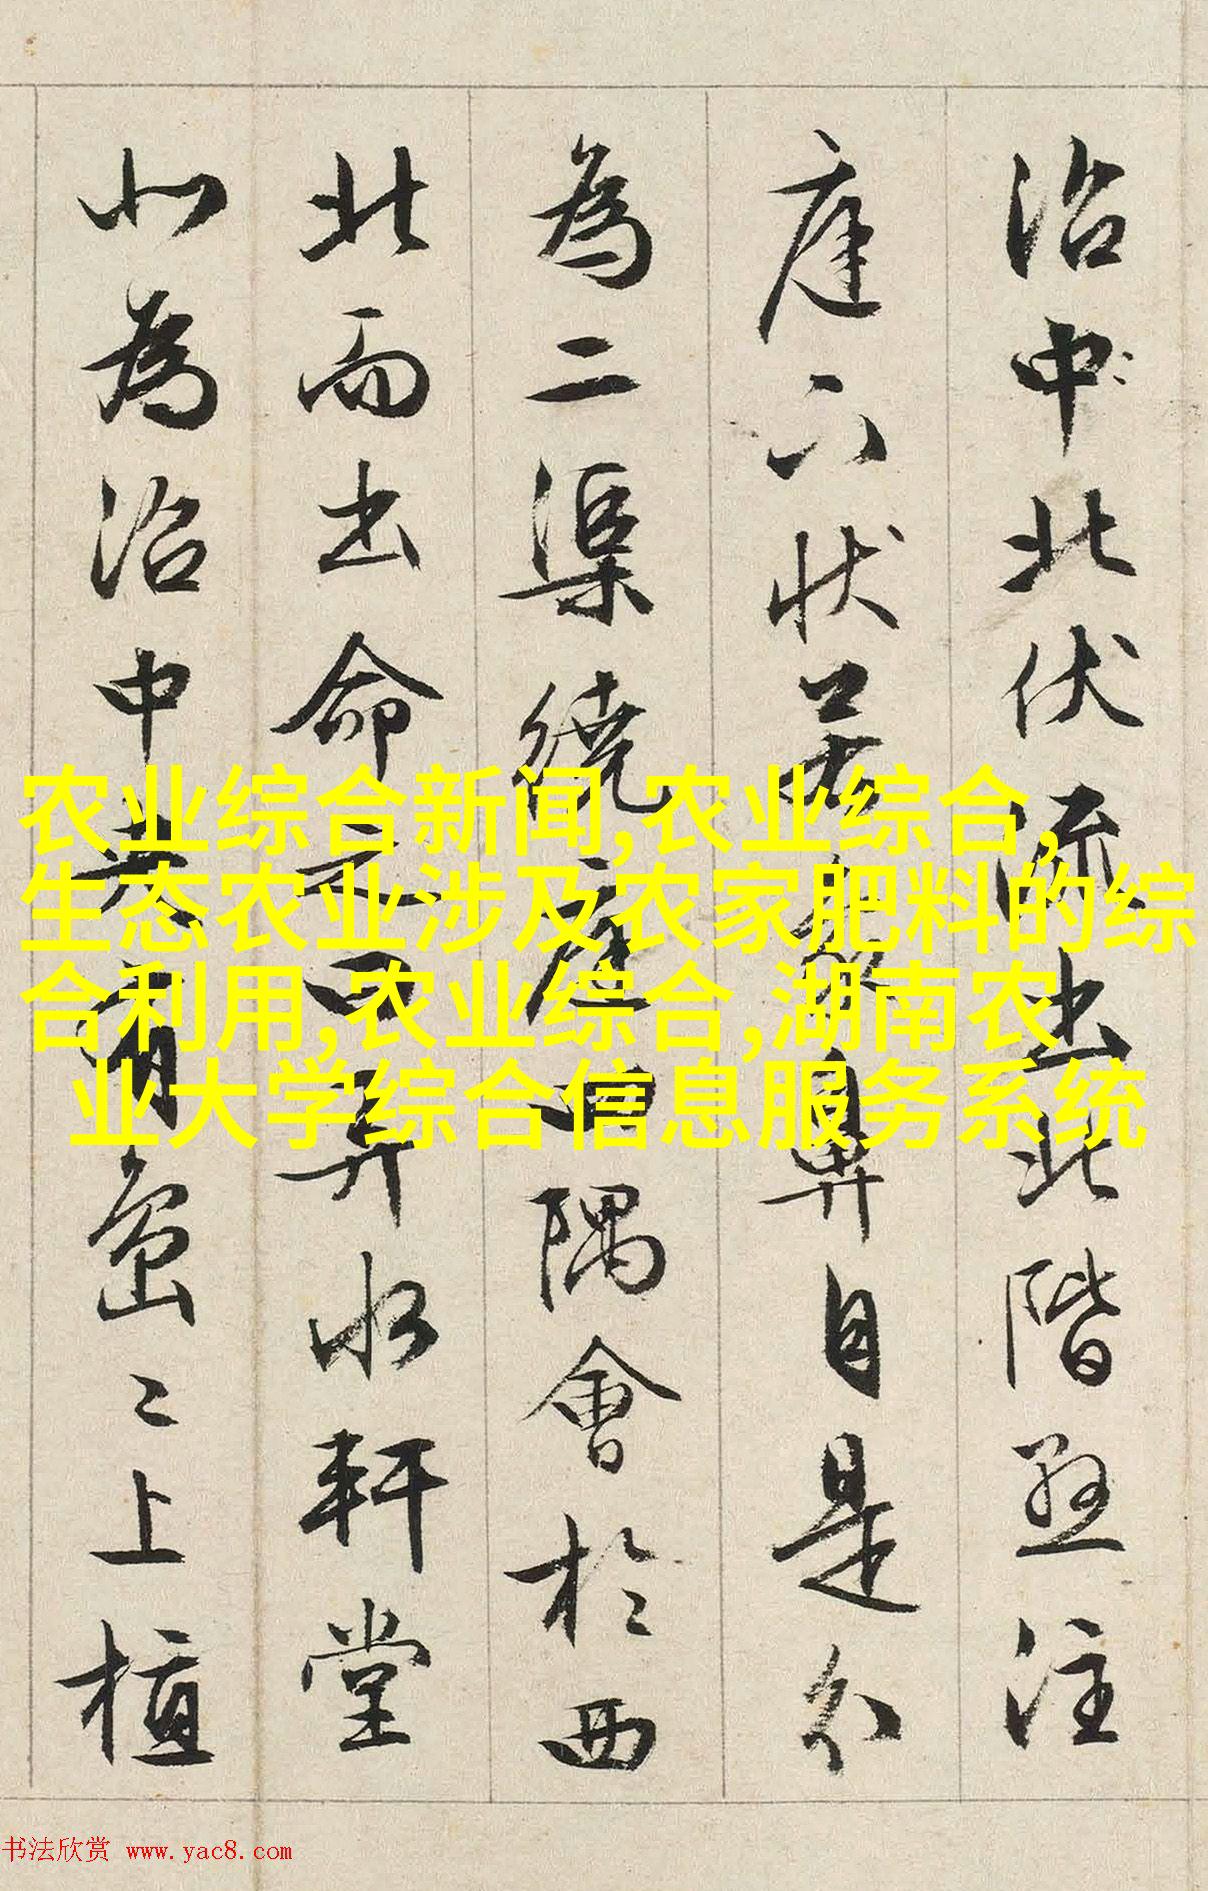 沼中北伏流出北階懸注
庭下状若象鼻自是分
為二渠繞庭四隅會於西
北而出命之曰弄水軒堂
北為沼中央有島〻上植
农业综合新闻,农业综合,
生态农业涉及农家肥料的综
合利用,农业综合,湖南农
业大学综合信息服务系统
书法欣赏 www.yac8.com